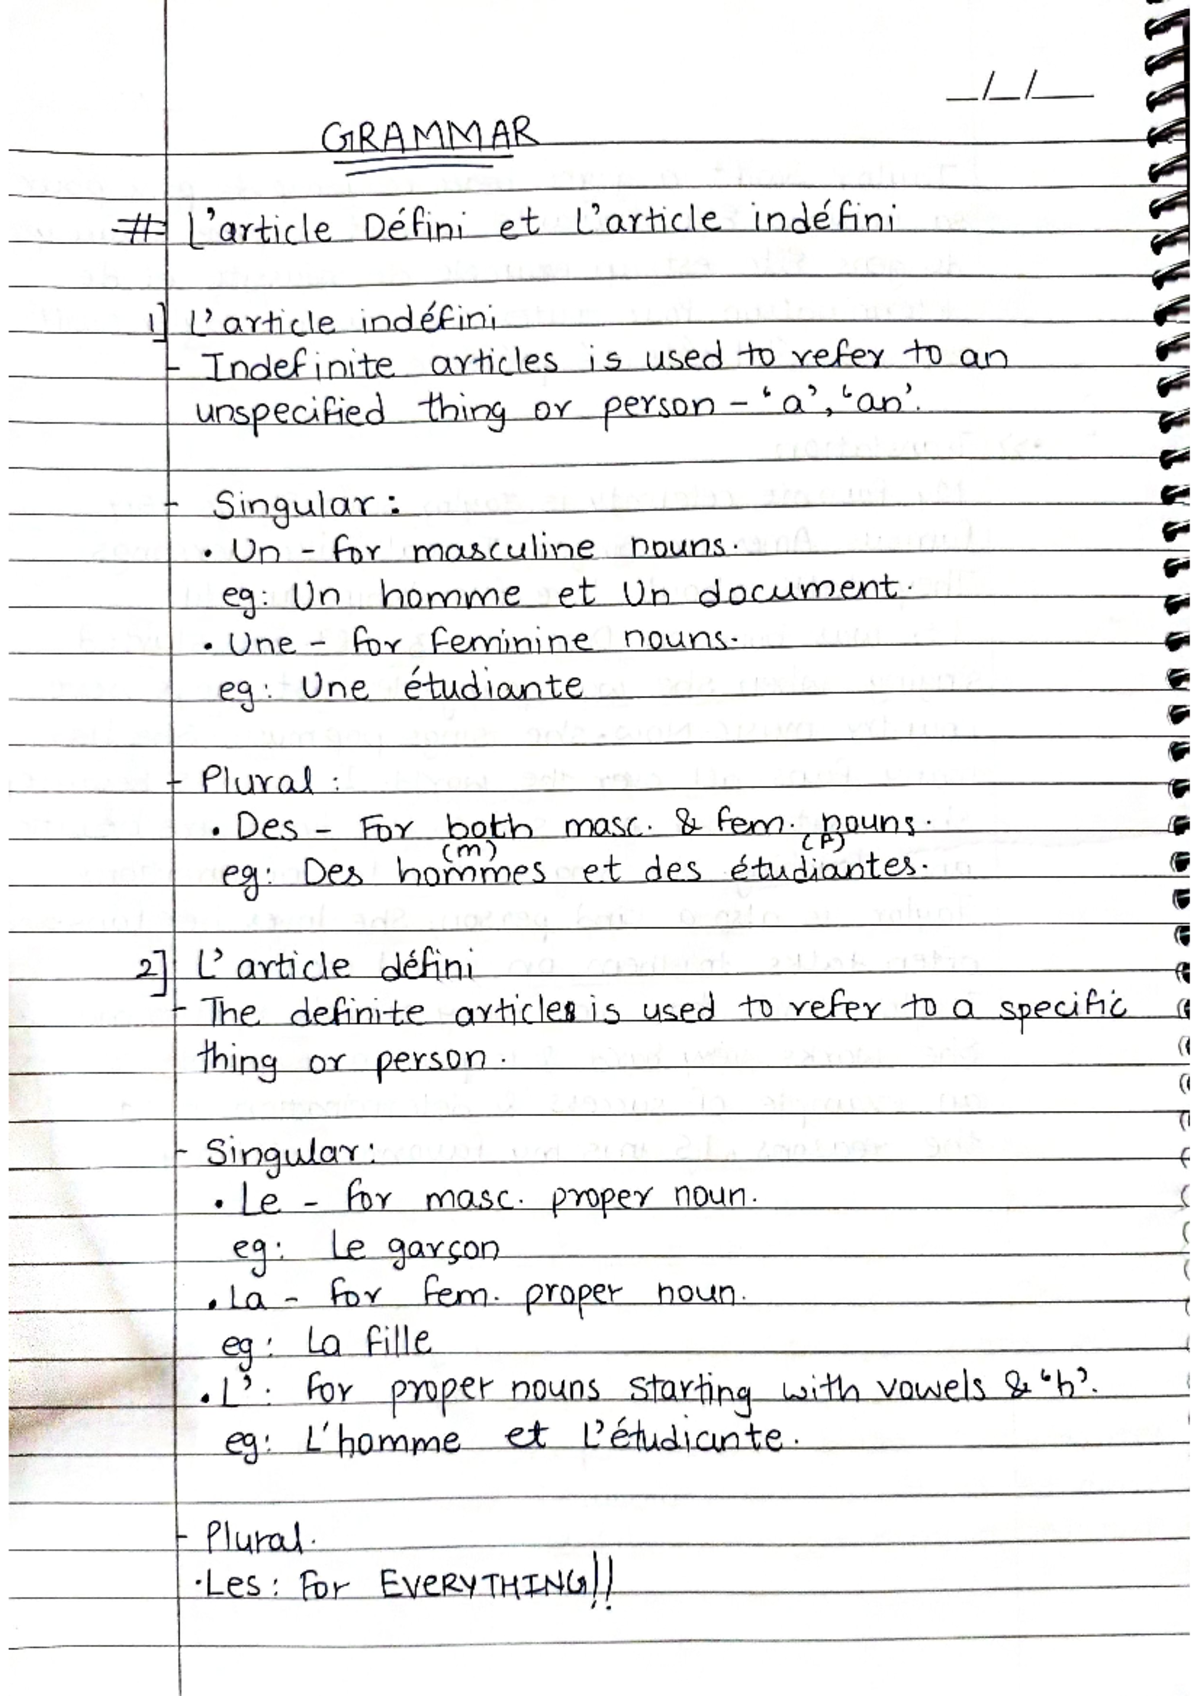 _/_/__
GRAMMAR
# L'article Défini et L'article indéfini
1] L'article indéfini
- Indefinite articles is used to refer to an
unspecified thing or person - 'a', 'an'.
- Singular:
• Un - for masculine nouns.
eg: Un homme et Un document.
• Une - for feminine nouns.
eg: Une étudiante
- Plural:
• Des - For both masc. & fem. nouns.
(m) (f)
eg: Des hommes et des étudiantes.
2] L'article défini
- The definite articles is used to refer to a specific
thing or person.
- Singular:
• Le - for masc. proper noun.
eg: Le garçon
• La - for fem. proper noun.
eg: La fille
• L': for proper nouns starting with vowels & "h".
eg: L'homme et L'étudiante.
- Plural.
• Les: For EVERYTHING!!